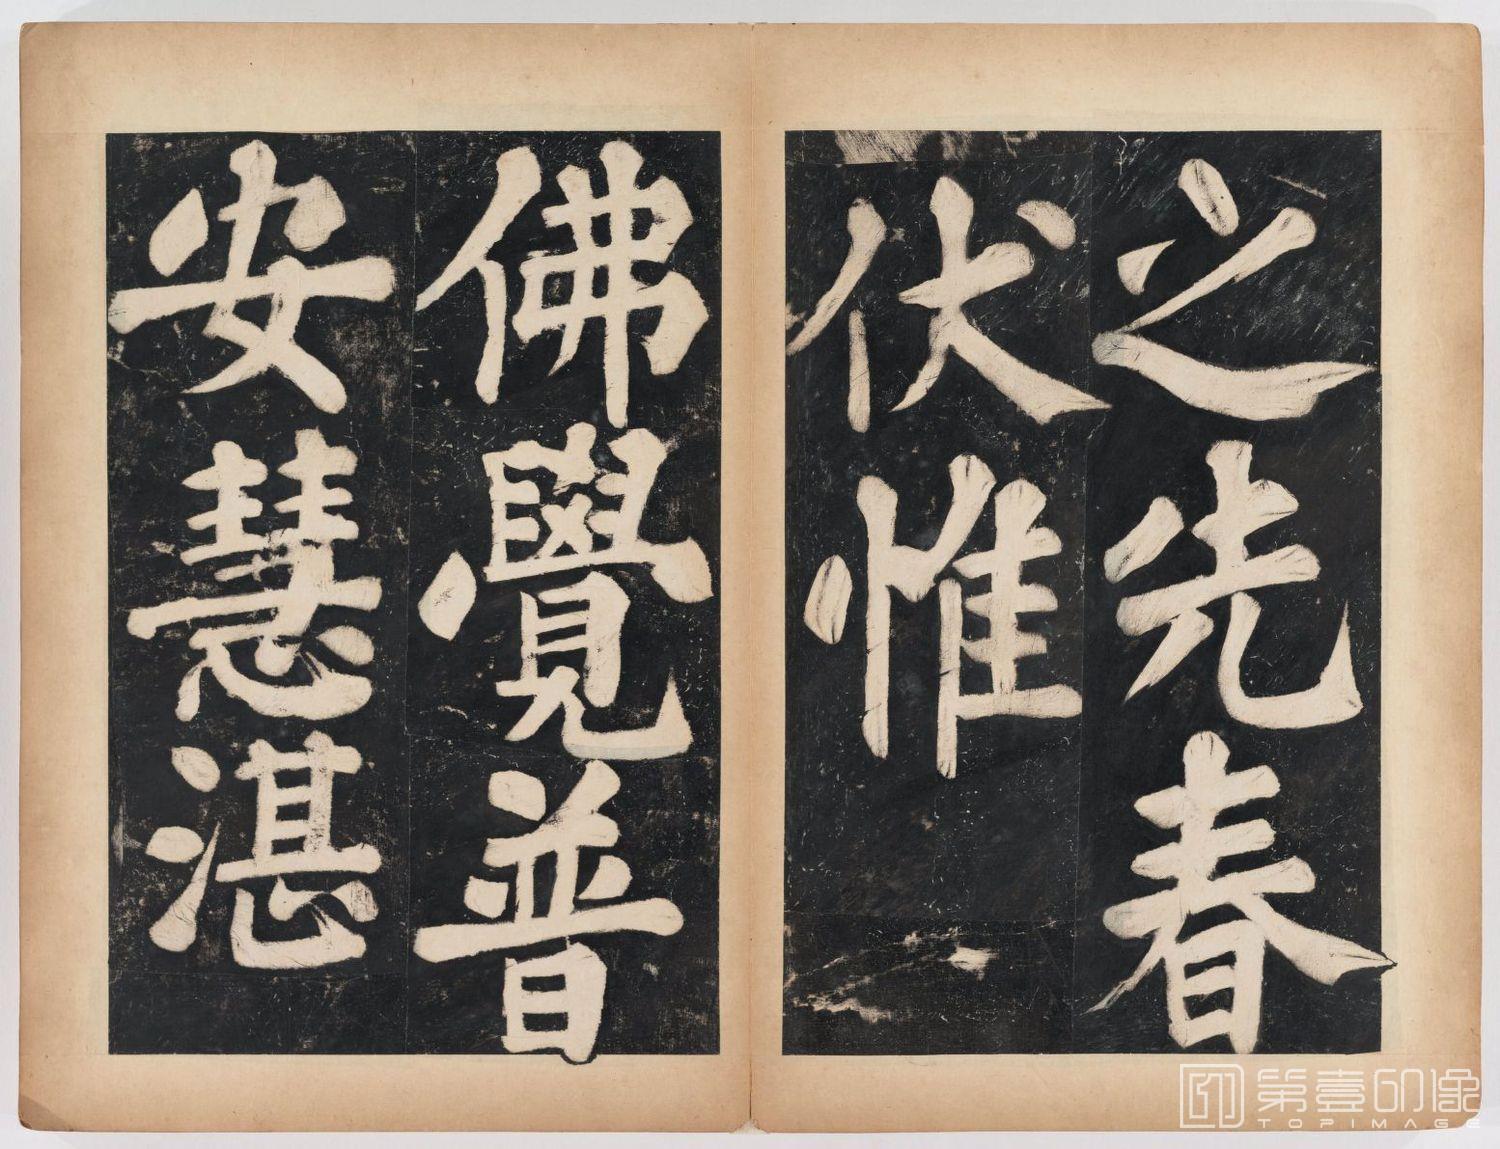 之先春
伏惟
佛覺普
安慧湛
第壹印像
TOPIMAGE